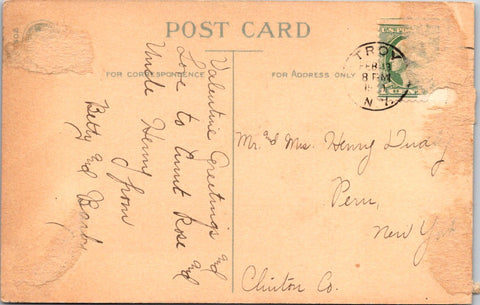 POST CARD
FOR CORRESPONDENCE
FOR ADDRESS ONLY
Valentine Greetings and
Love to Aunt Rose and
Uncle Henry
from
Betty and
TROY
FEB 13
8 PM
N.Y.
Mr. and Mrs. Henry
Peru,
New York
Clinton Co.